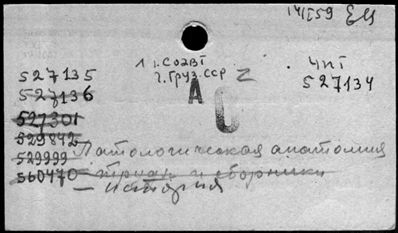 14/I59 ЕЦ
1 г.СО2ВТ
2.Груз.ССР 2
ЧПТ
527134
А
С
527135
527136
527301
529842
529999
560470
Патологическая анатомия
труды и сборники
— история